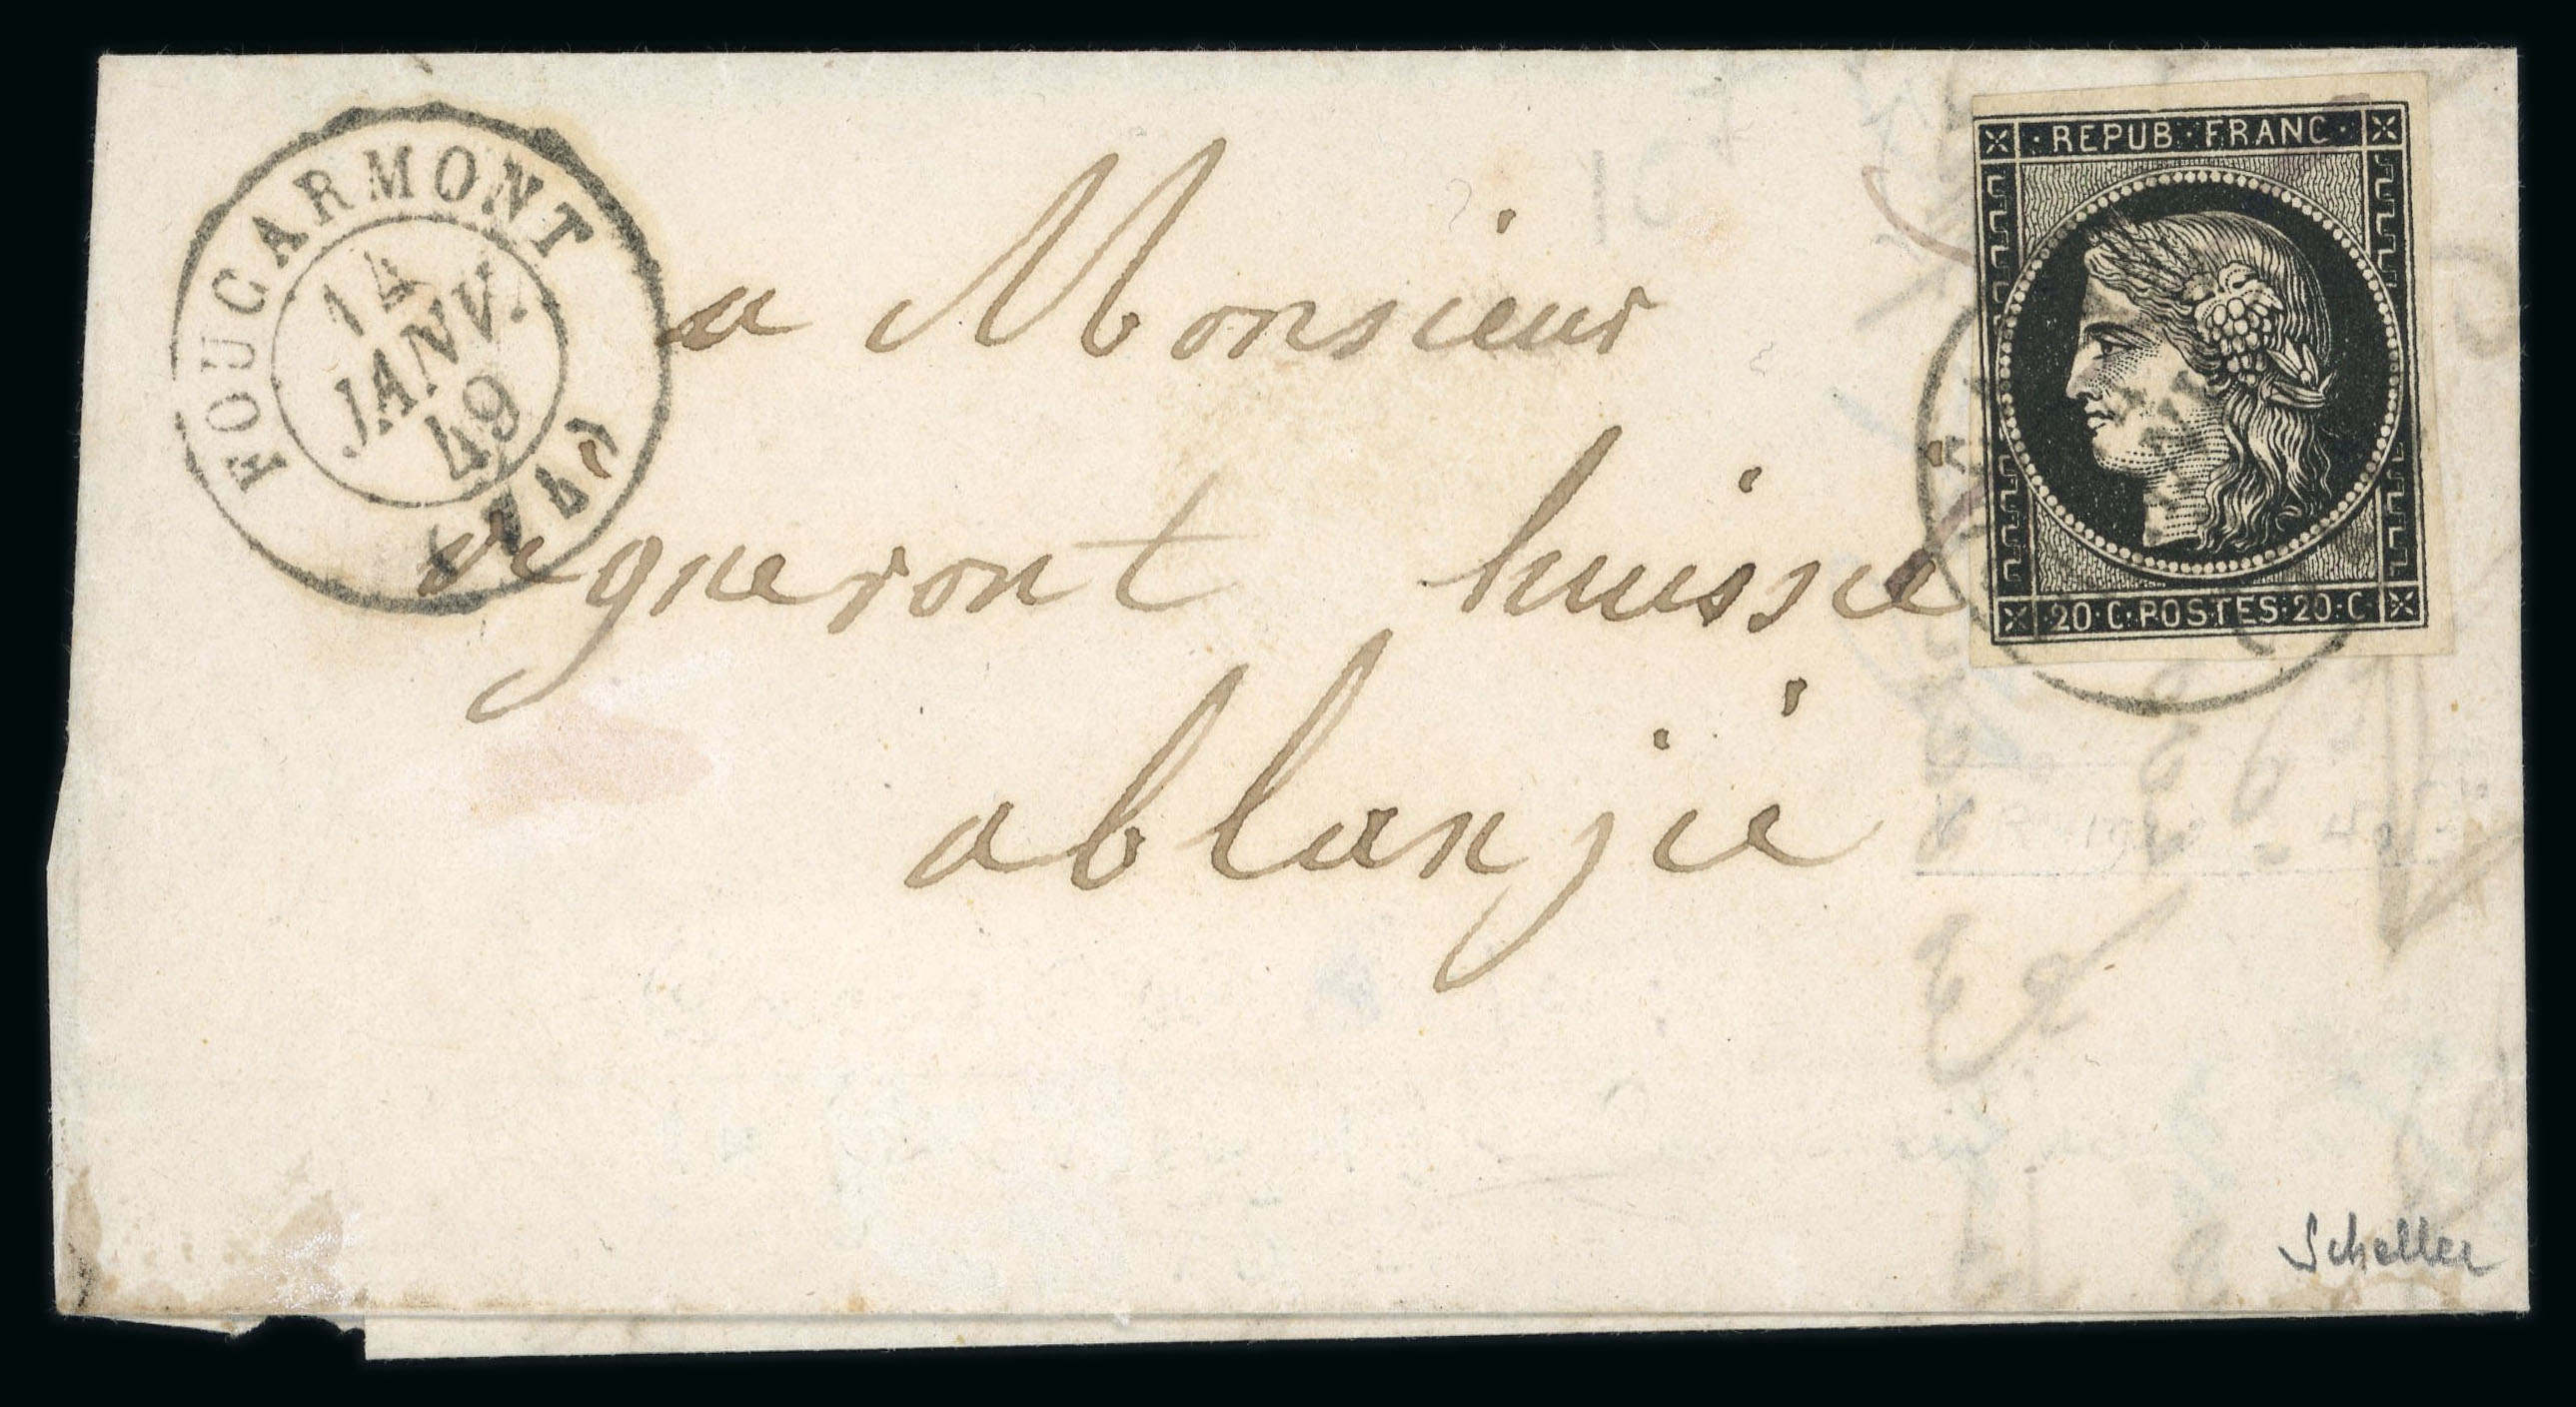 FOUCARMONT
14
JANV.
49
REPUB · FRANC ·
20 · C · POSTES · 20 · C
a Monsieur
vigneront huissie
a blanjié
Scheller